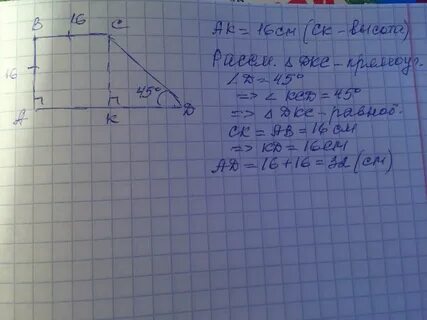 B 16 C
16
45°
A K D
AK = 16см (СК - высота)
Рассм. △DКС - прямоуг.
∠D = 45°
=> ∠KCD = 45°
=> △DКС - равноб.
СК = АВ = 16 см
=> KD = 16см
AD = 16 + 16 = 32 (см)